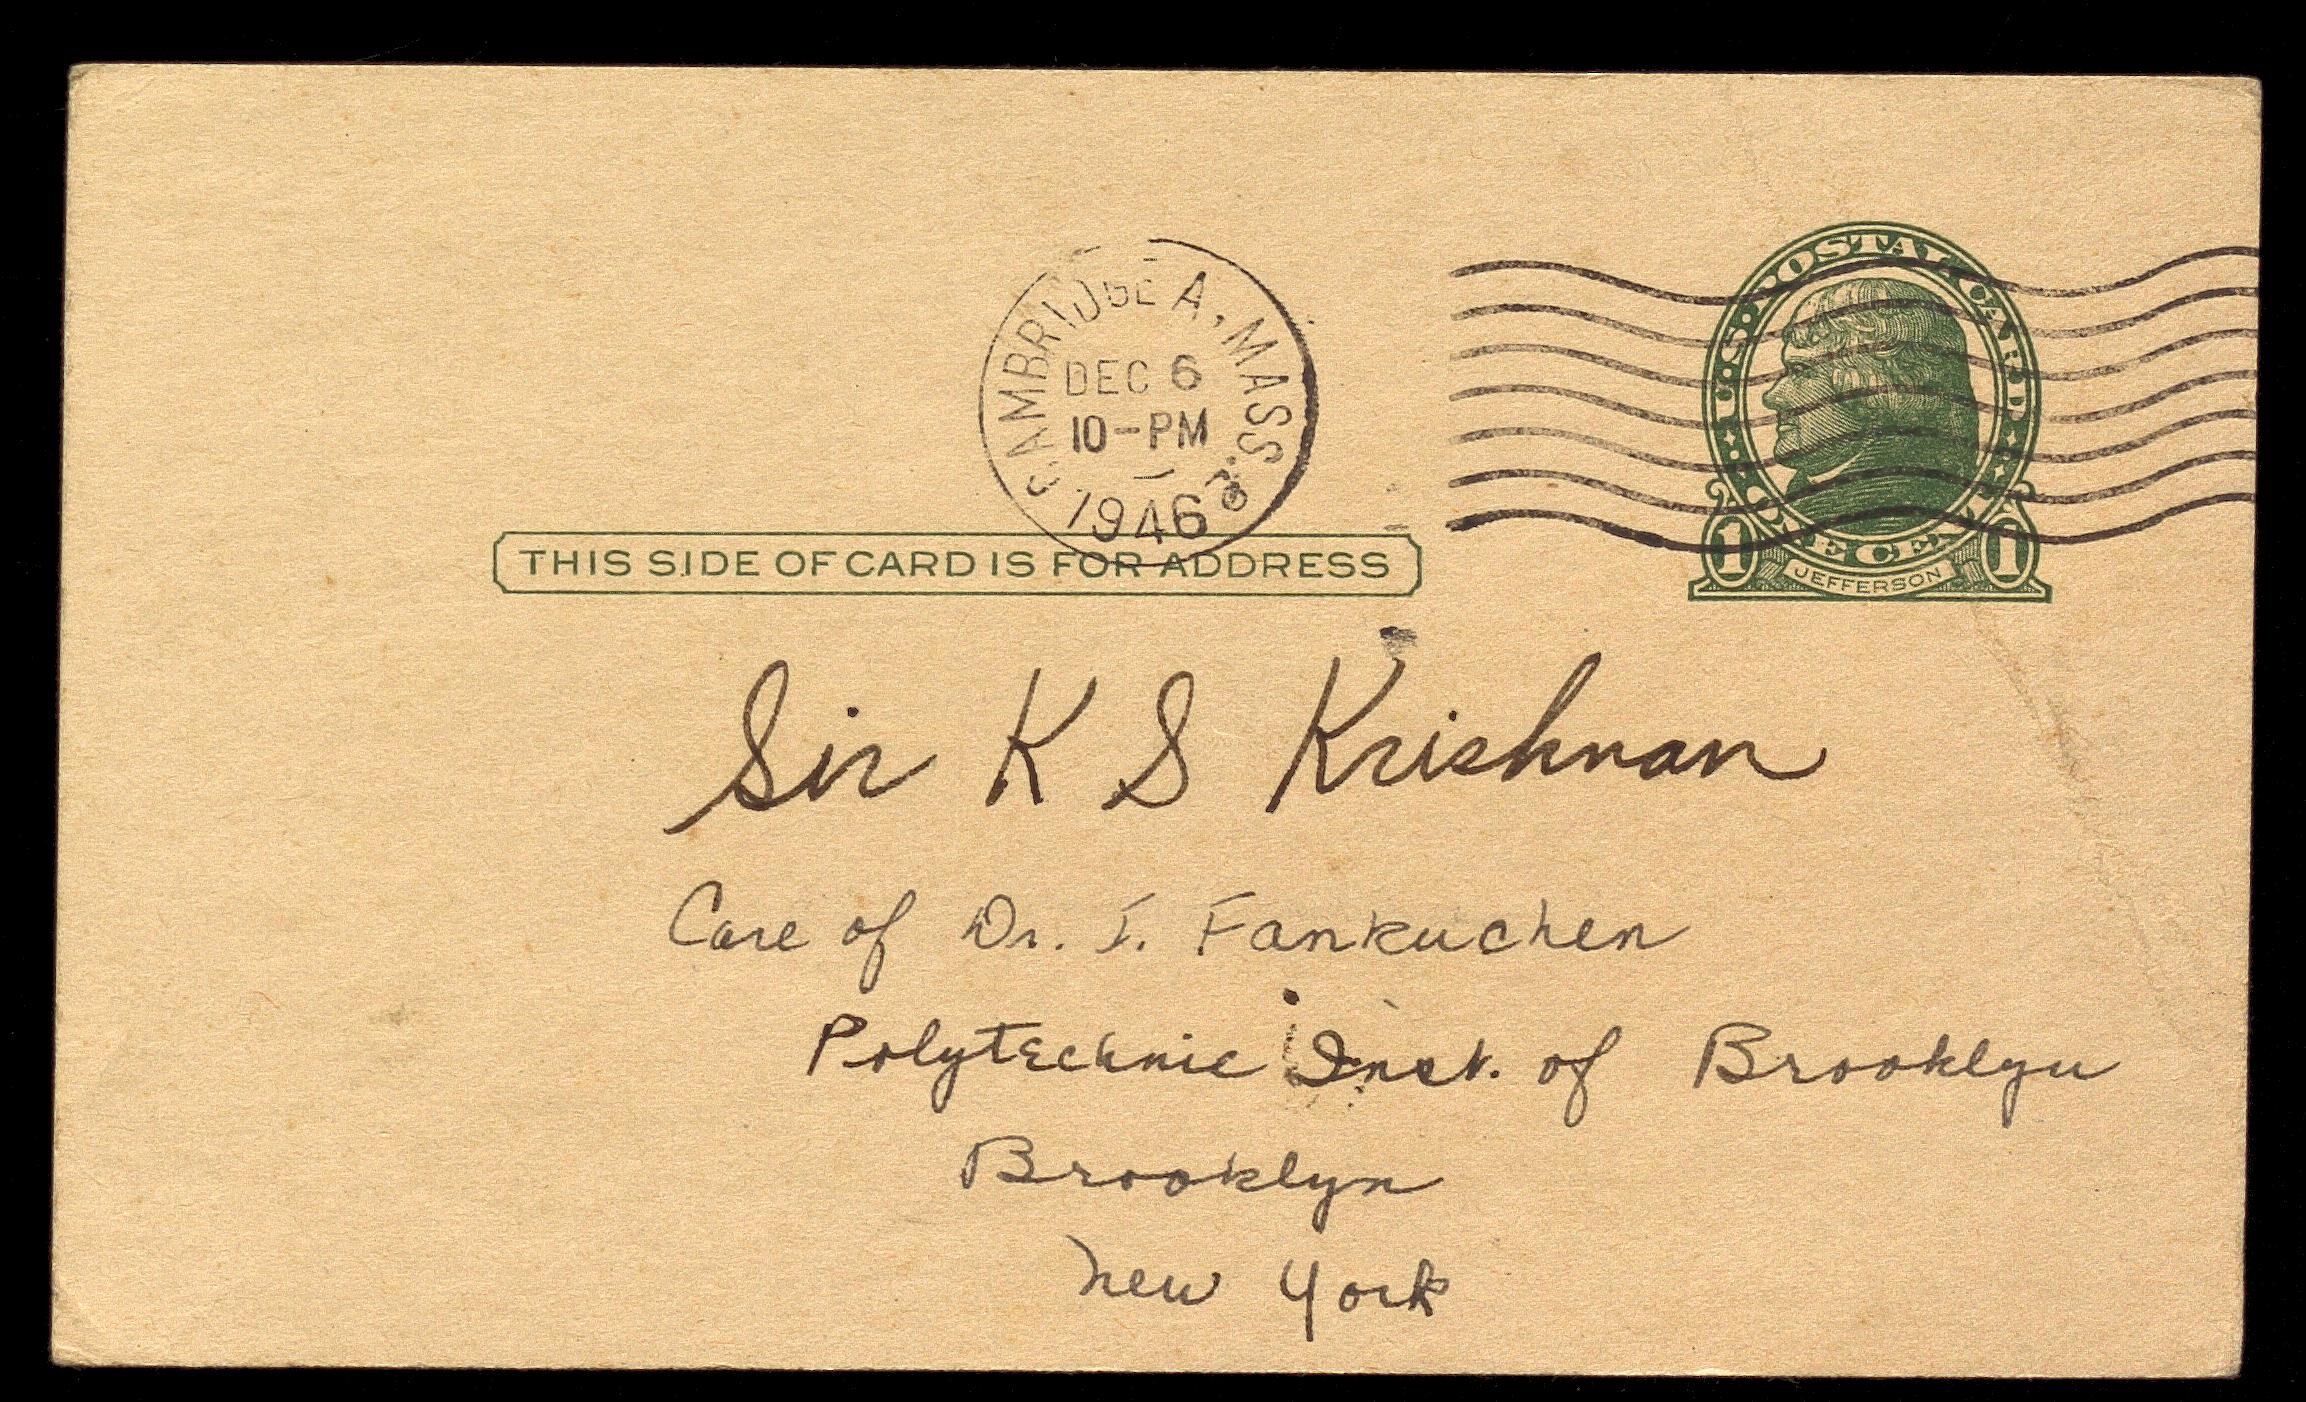 CAMBRIDGE A, MASS.
DEC 6
10-PM
1946
U.S. POSTAL CARD
ONE CENT
1 1
JEFFERSON
THIS SIDE OF CARD IS FOR ADDRESS
Sir K S Krishnan
Care of Dr. I. Fankuchen
Polytechnic Inst. of Brooklyn
Brooklyn
New York